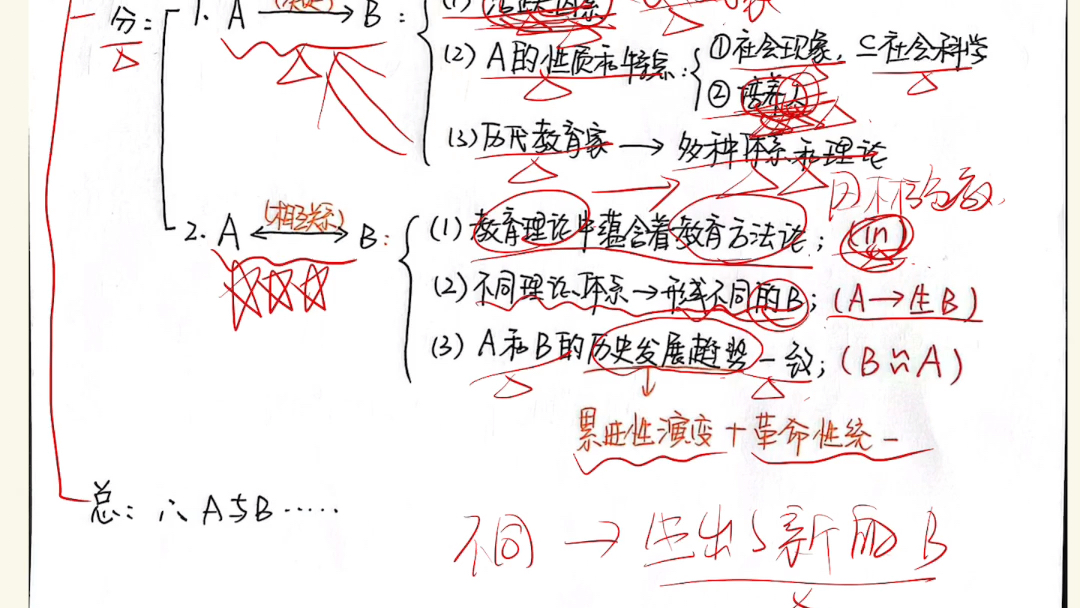 分: 1. A → B: (1)
(2) A的性质和特点: ①社会现象, ⊂社会科学
②培养人
(3) 历代教育家 → 多种体系和理论
2. A (相互关系) ↔ B: (1) 教育理论中蕴含着教育方法论; (in)
(2) 不同理论体系→形成不同的B; (A→生B)
(3) A和B的历史发展趋势一致; (B≈A)
累进性演变+革命性统一
总: ∴ A与B……
不同 → 生出 新的B